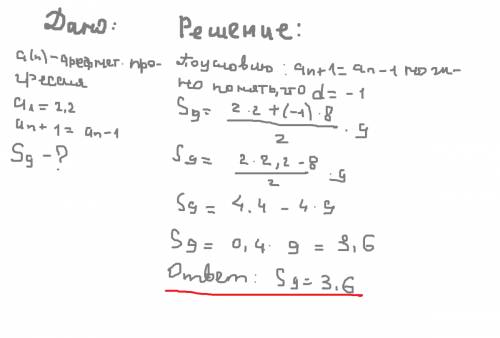 Дано:
Решение:
a(n) - арефмет. про-
грессия
a₁ = 2,2
an+1 = an-1
S9 - ?
По условию : an+1 = an-1 мож-
но понять, что d = -1
S9 = (2·2 + (-1)·8)/2 · 9
S9 = (2·2,2 - 8)/2 · 9
S9 = 4.4 - 4·9
S9 = 0,4·9 = 3,6
Ответ: S9 = 3.6